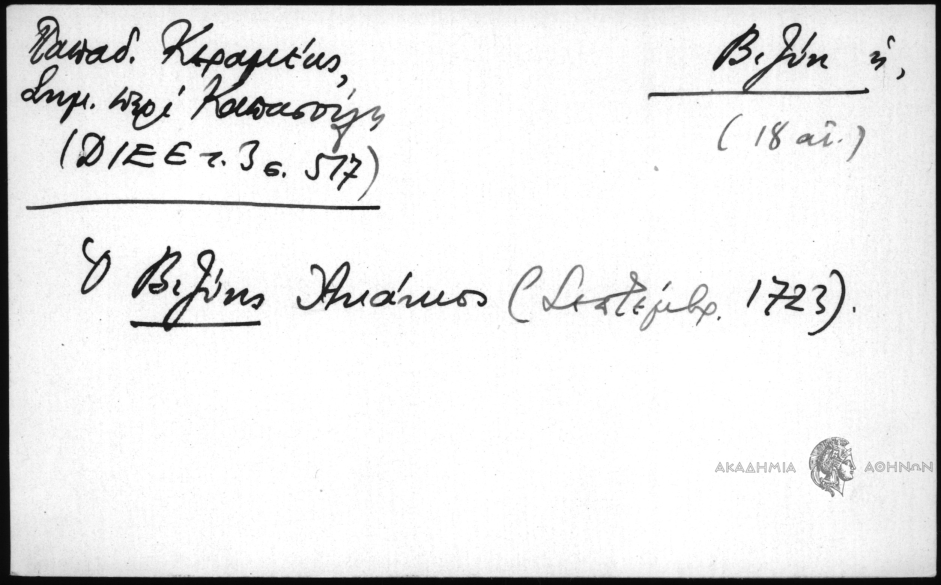 Παπαδ. Κεραμεύς,
Σημ. περί Καπασούλη
(ΔΙΕΕ τ. 3 σ. 517)
Βιζύη ἡ,
(18 αἰ.)
Ὁ Βιζύης Ἀκάκιος (Σεπτέμβρ. 1723).
ΑΚΑΔΗΜΙΑ ΑΘΗΝΩΝ